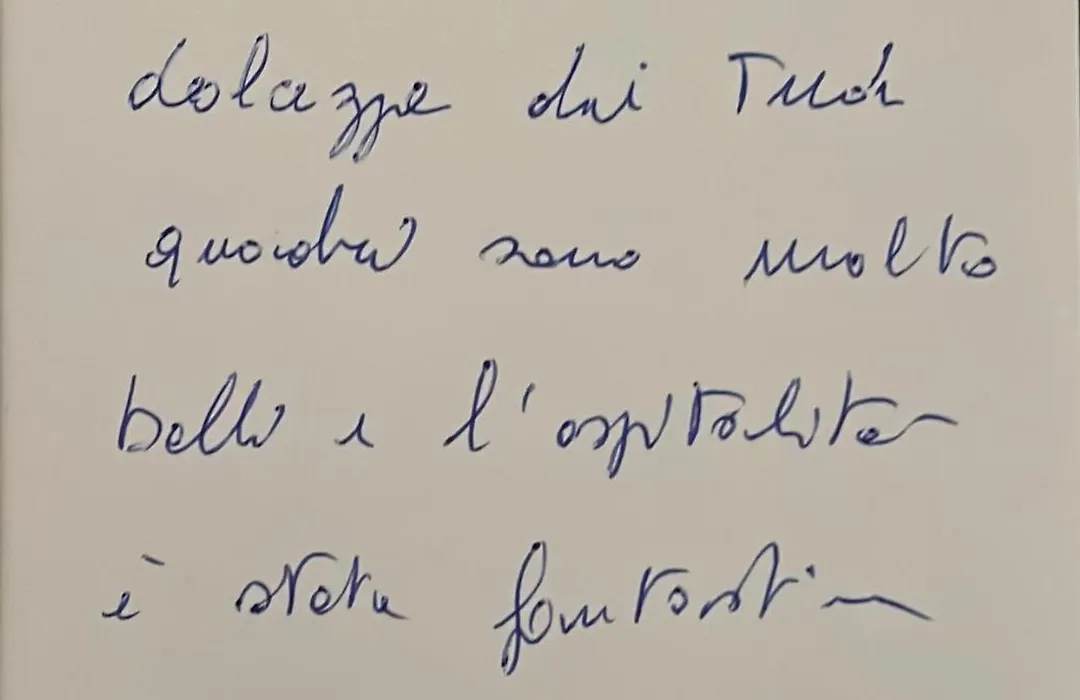 dolcezze dei Tuoi
quadri sono molto
belli e l'ospitalità
è stata fantastica